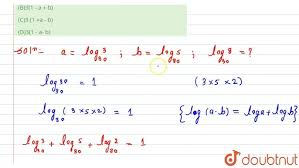 (B)3(1 - a + b)
(C)3(1 + a - b)
(D)3(1 - a - b)
Soln - a = log₃₀3 ; b = log₃₀5 ; log₃₀8 = ?
log₃₀30 = 1 (3×5×2)
log₃₀(3×5×2) = 1 {log(a·b) = log a + log b}
log₃₀3 + log₃₀5 + log₃₀2 = 1
doubtnut